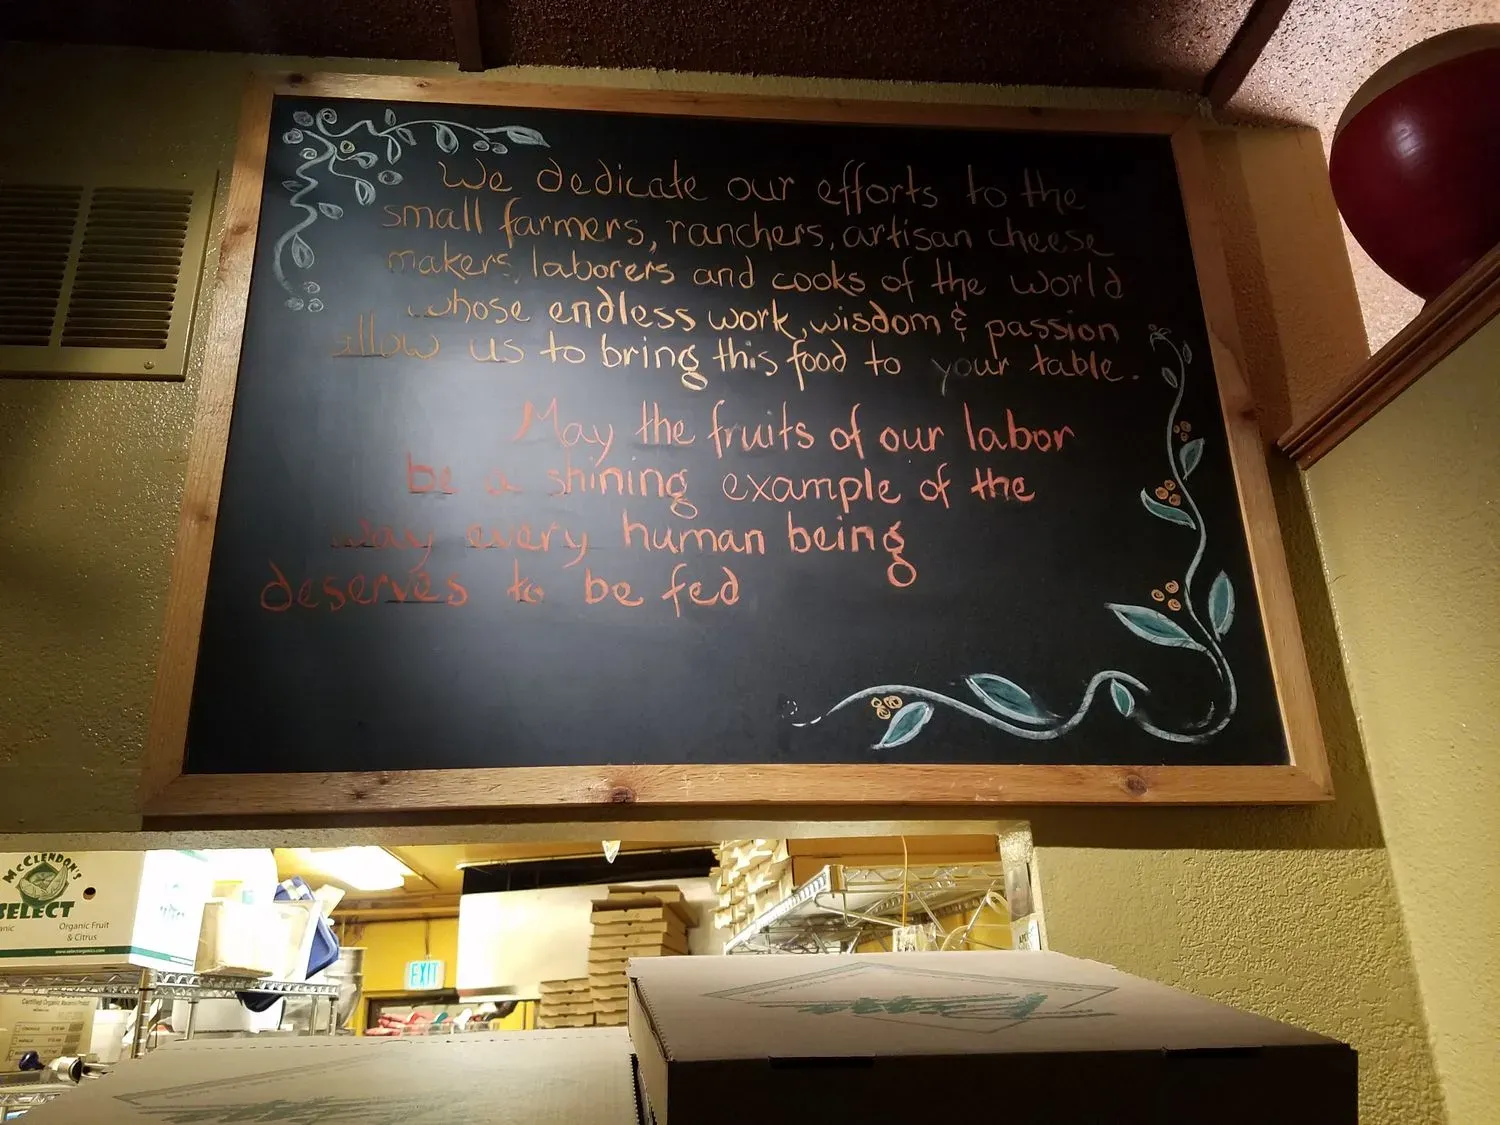 We dedicate our efforts to the
small farmers, ranchers, artisan cheese
makers, laborers and cooks of the world
whose endless work, wisdom & passion
allow us to bring this food to your table.
May the fruits of our labor
be a shining example of the
way every human being
deserves to be fed
McCLENDON'S
SELECT
Organic Fruit
& Citrus
EXIT